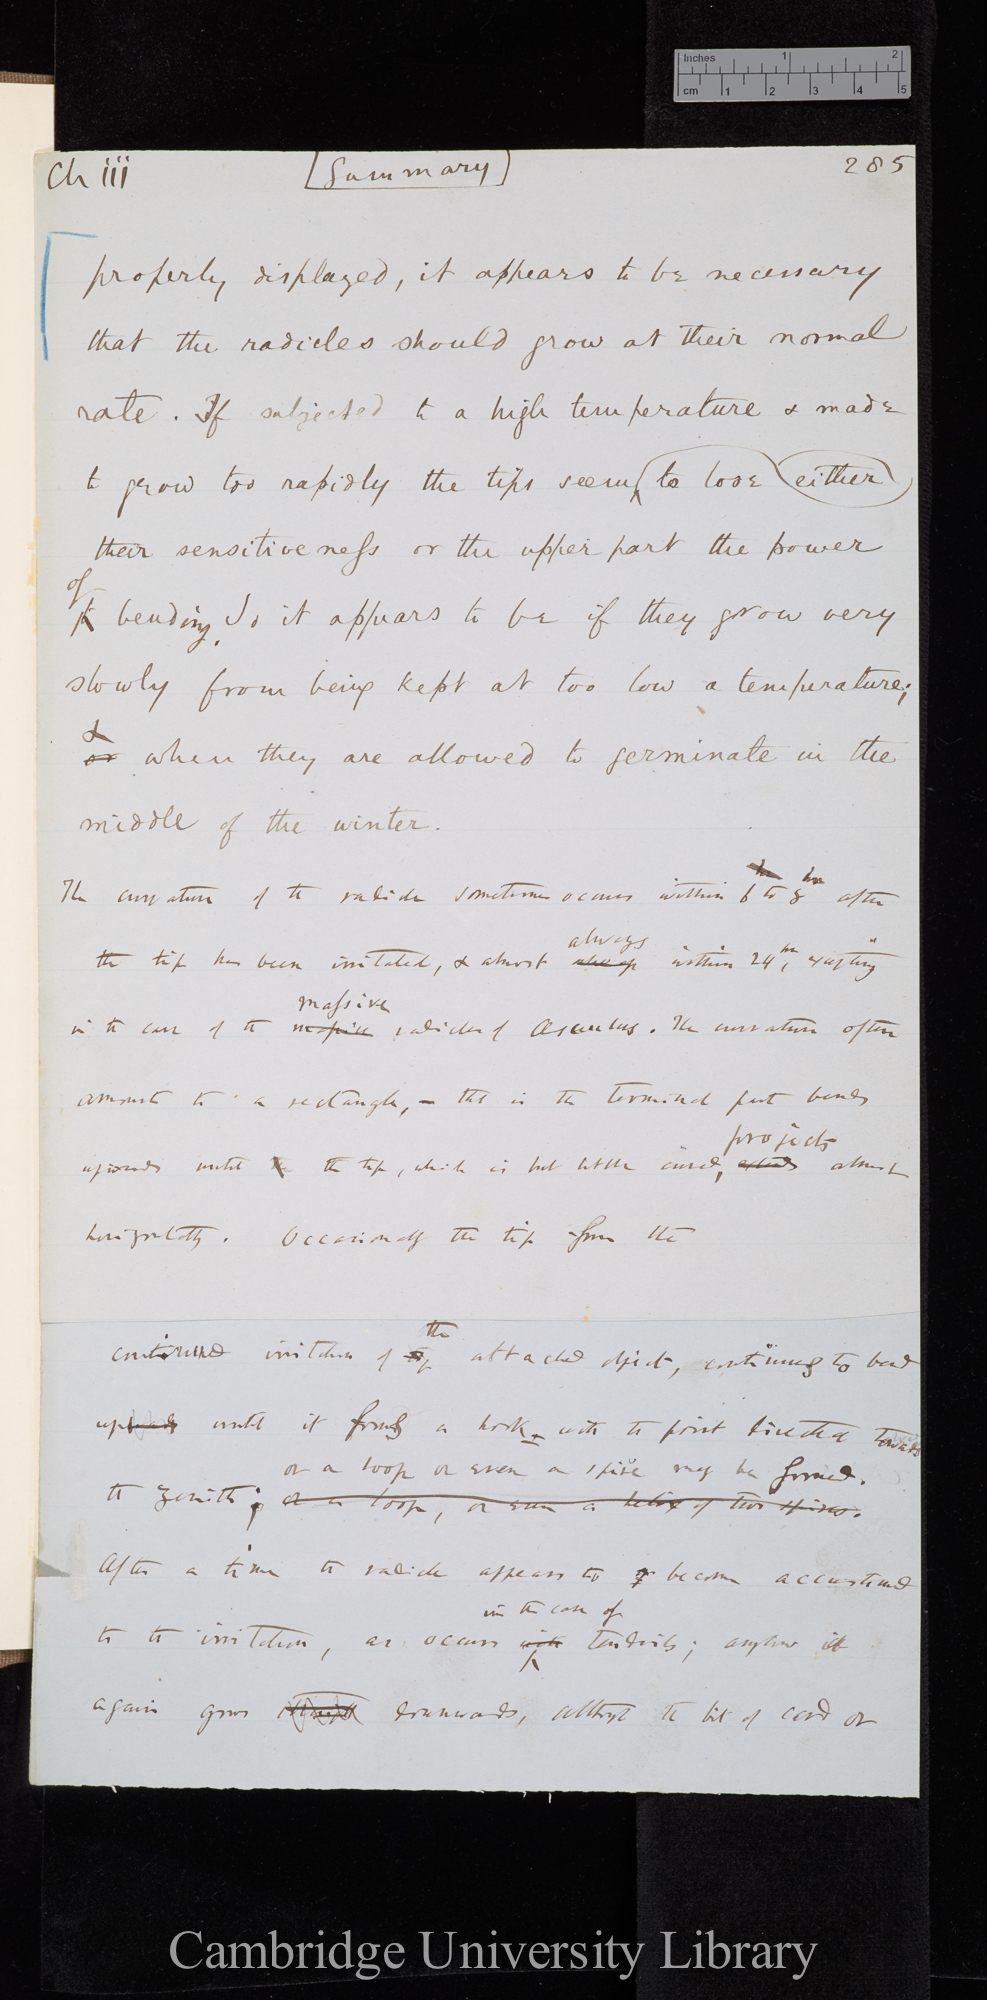 Inches 1 2
cm 1 2 3 4 5
Ch iii [Summary] 285
properly displayed, it appears to be necessary
that the radicles should grow at their normal
rate. If subjected to a high temperature & made
to grow too rapidly the tips seem to lose either
their sensitiveness or the upper part the power
of
bending. So it appears to be if they grow very
slowly from being kept at too low a temperature;
&
or when they are allowed to germinate in the
middle of the winter.
The curvature of the radicle sometimes occurs within 6 to 8 hr after
always
the tip has been irritated, & almost within 24 hr, excepting
massive
in the case of the radicles of Æsculus. The curvature often
amounts to a rectangle, – that is the terminal part bends
projects
upwards until the tip, which is but little curved, almost
horizontally. Occasionally the tip from the
the
continued irritation of attached object, continues to bend
up until it forms a hook with the point directed towards
or a loop or even a spire may be formed.
the zenith; or a loop, or even a helix of two spires.
After a time the radicle appears to become accustomed
in the case of
to the irritation, as occurs with tendrils; anyhow it
again grows downwards, although the bit of card or
Cambridge University Library